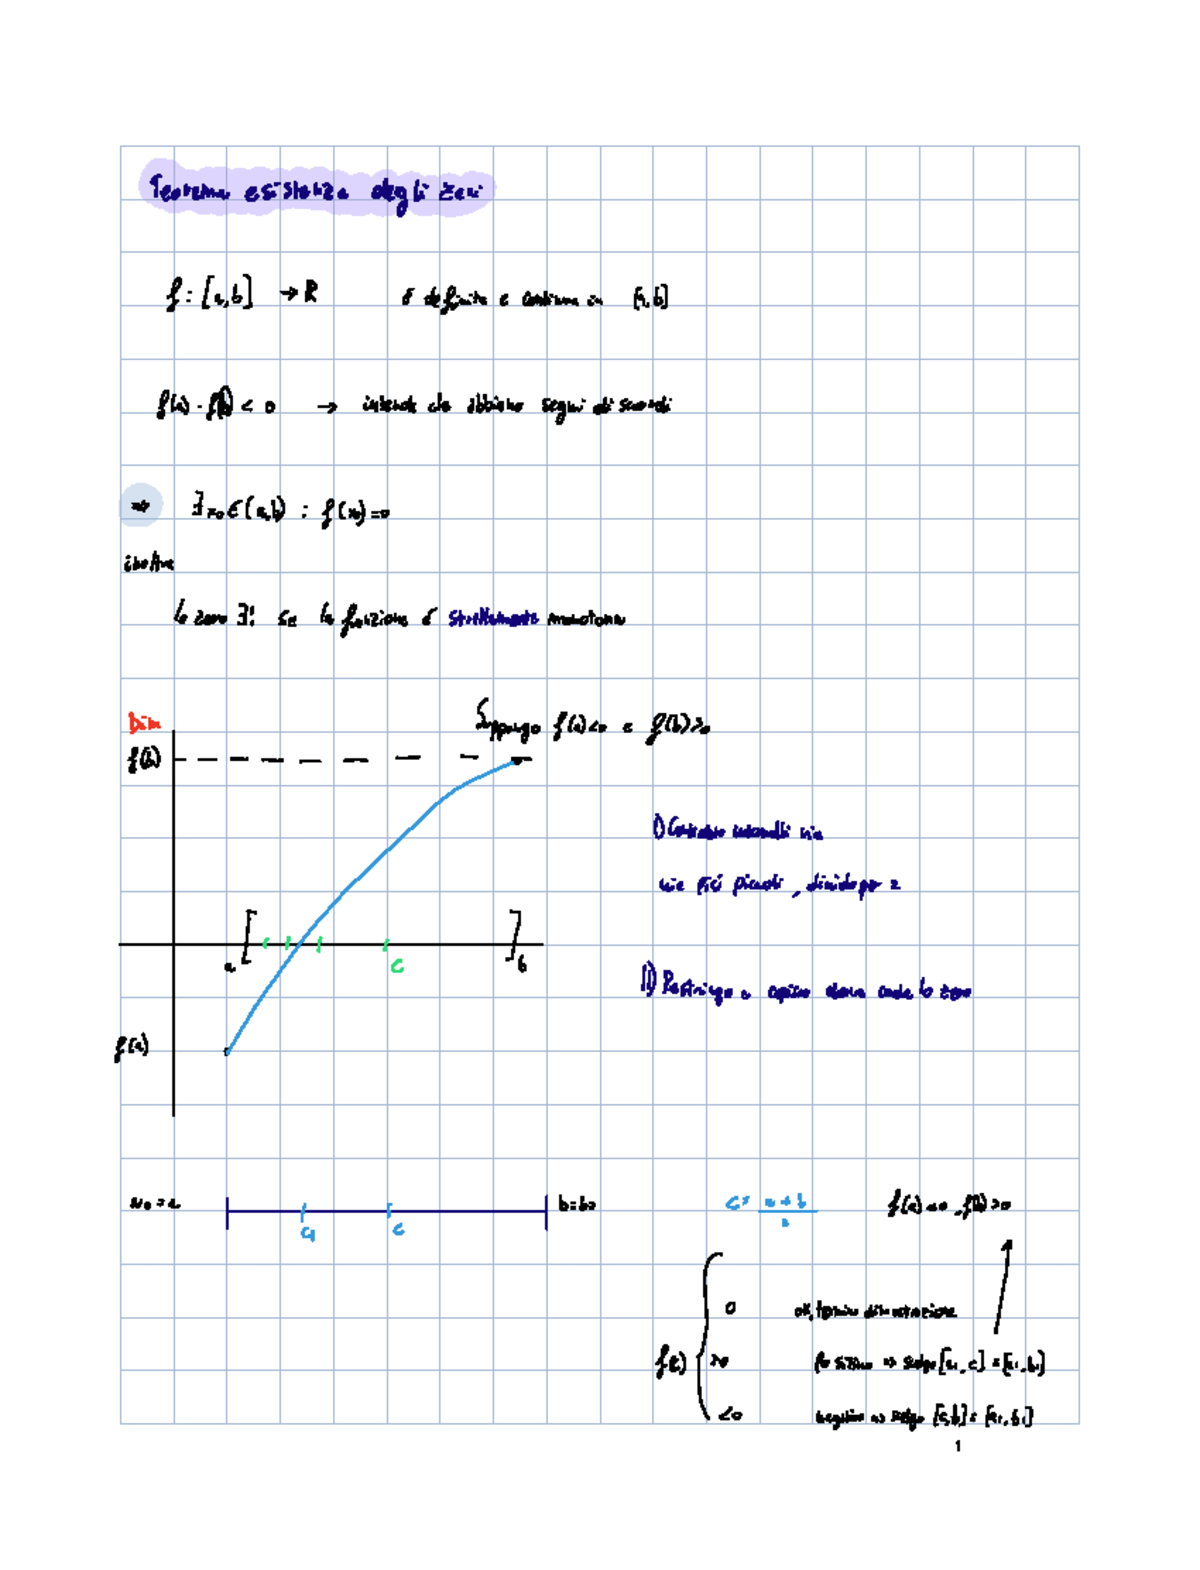 Teorema esistenza degli zeri
f : [a,b] → R è definita e continua in [a,b]
f(a) · f(b) < 0 → intende che abbiamo segni discordi
⇒ ∃ x₀ ∈ (a,b) : f(x₀) = 0
inoltre
lo zero ∃! se la funzione è strettamente monotona
Dim
Suppongo f(a)<0 e f(b)>0
f(b)
I) Considero intervalli via
via più piccoli, divido per 2
a c b
II) Restringo e capisco dove cade lo zero
f(a)
a₀ = a c₁ c b = b₀
c = a + b / 2 f(a)<0, f(b)>0
f(c) {
0 ok, termino dimostrazione
>0 Positivo ⇒ scelgo [a, c] = [a₁, b₁]
<0 negativo ⇒ scelgo [c,b] = [a₁, b₁]
1